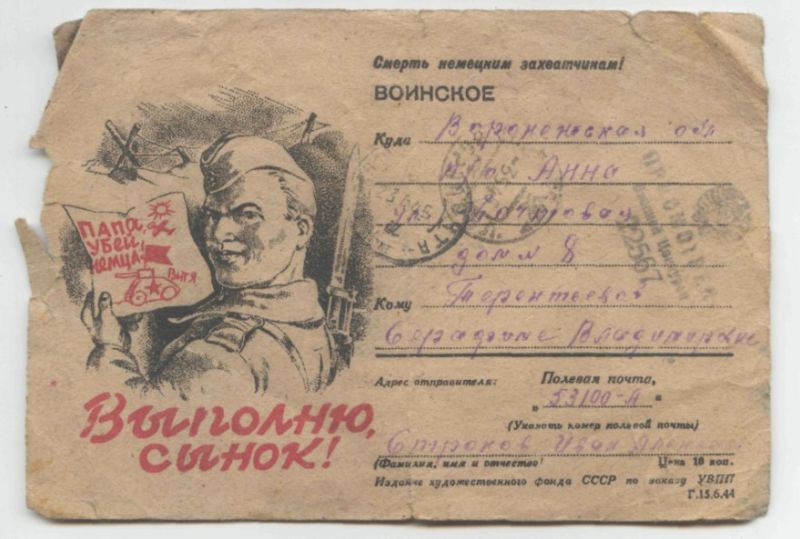 Смерть немецким захватчикам!
ВОИНСКОЕ
Куда Воронежская обл
п/о Анна
ул Почтовая
дом 8
Кому Терентьевой
Серафиме Владимировне
Адрес отправителя: Полевая почта,
„ 53100-А “
(Указать номер полевой почты)
Строков Иван
(Фамилия, имя и отчество)
Цена 10 коп.
Издание художественного фонда СССР по заказу УВПП
Г.15.6.44
ПАПА,
УБЕЙ
НЕМЦА!
ВИТЯ
Выполню,
сынок!
ПРОСМОТРЕНО
Военной Цензурой
22567
ПОЧТА